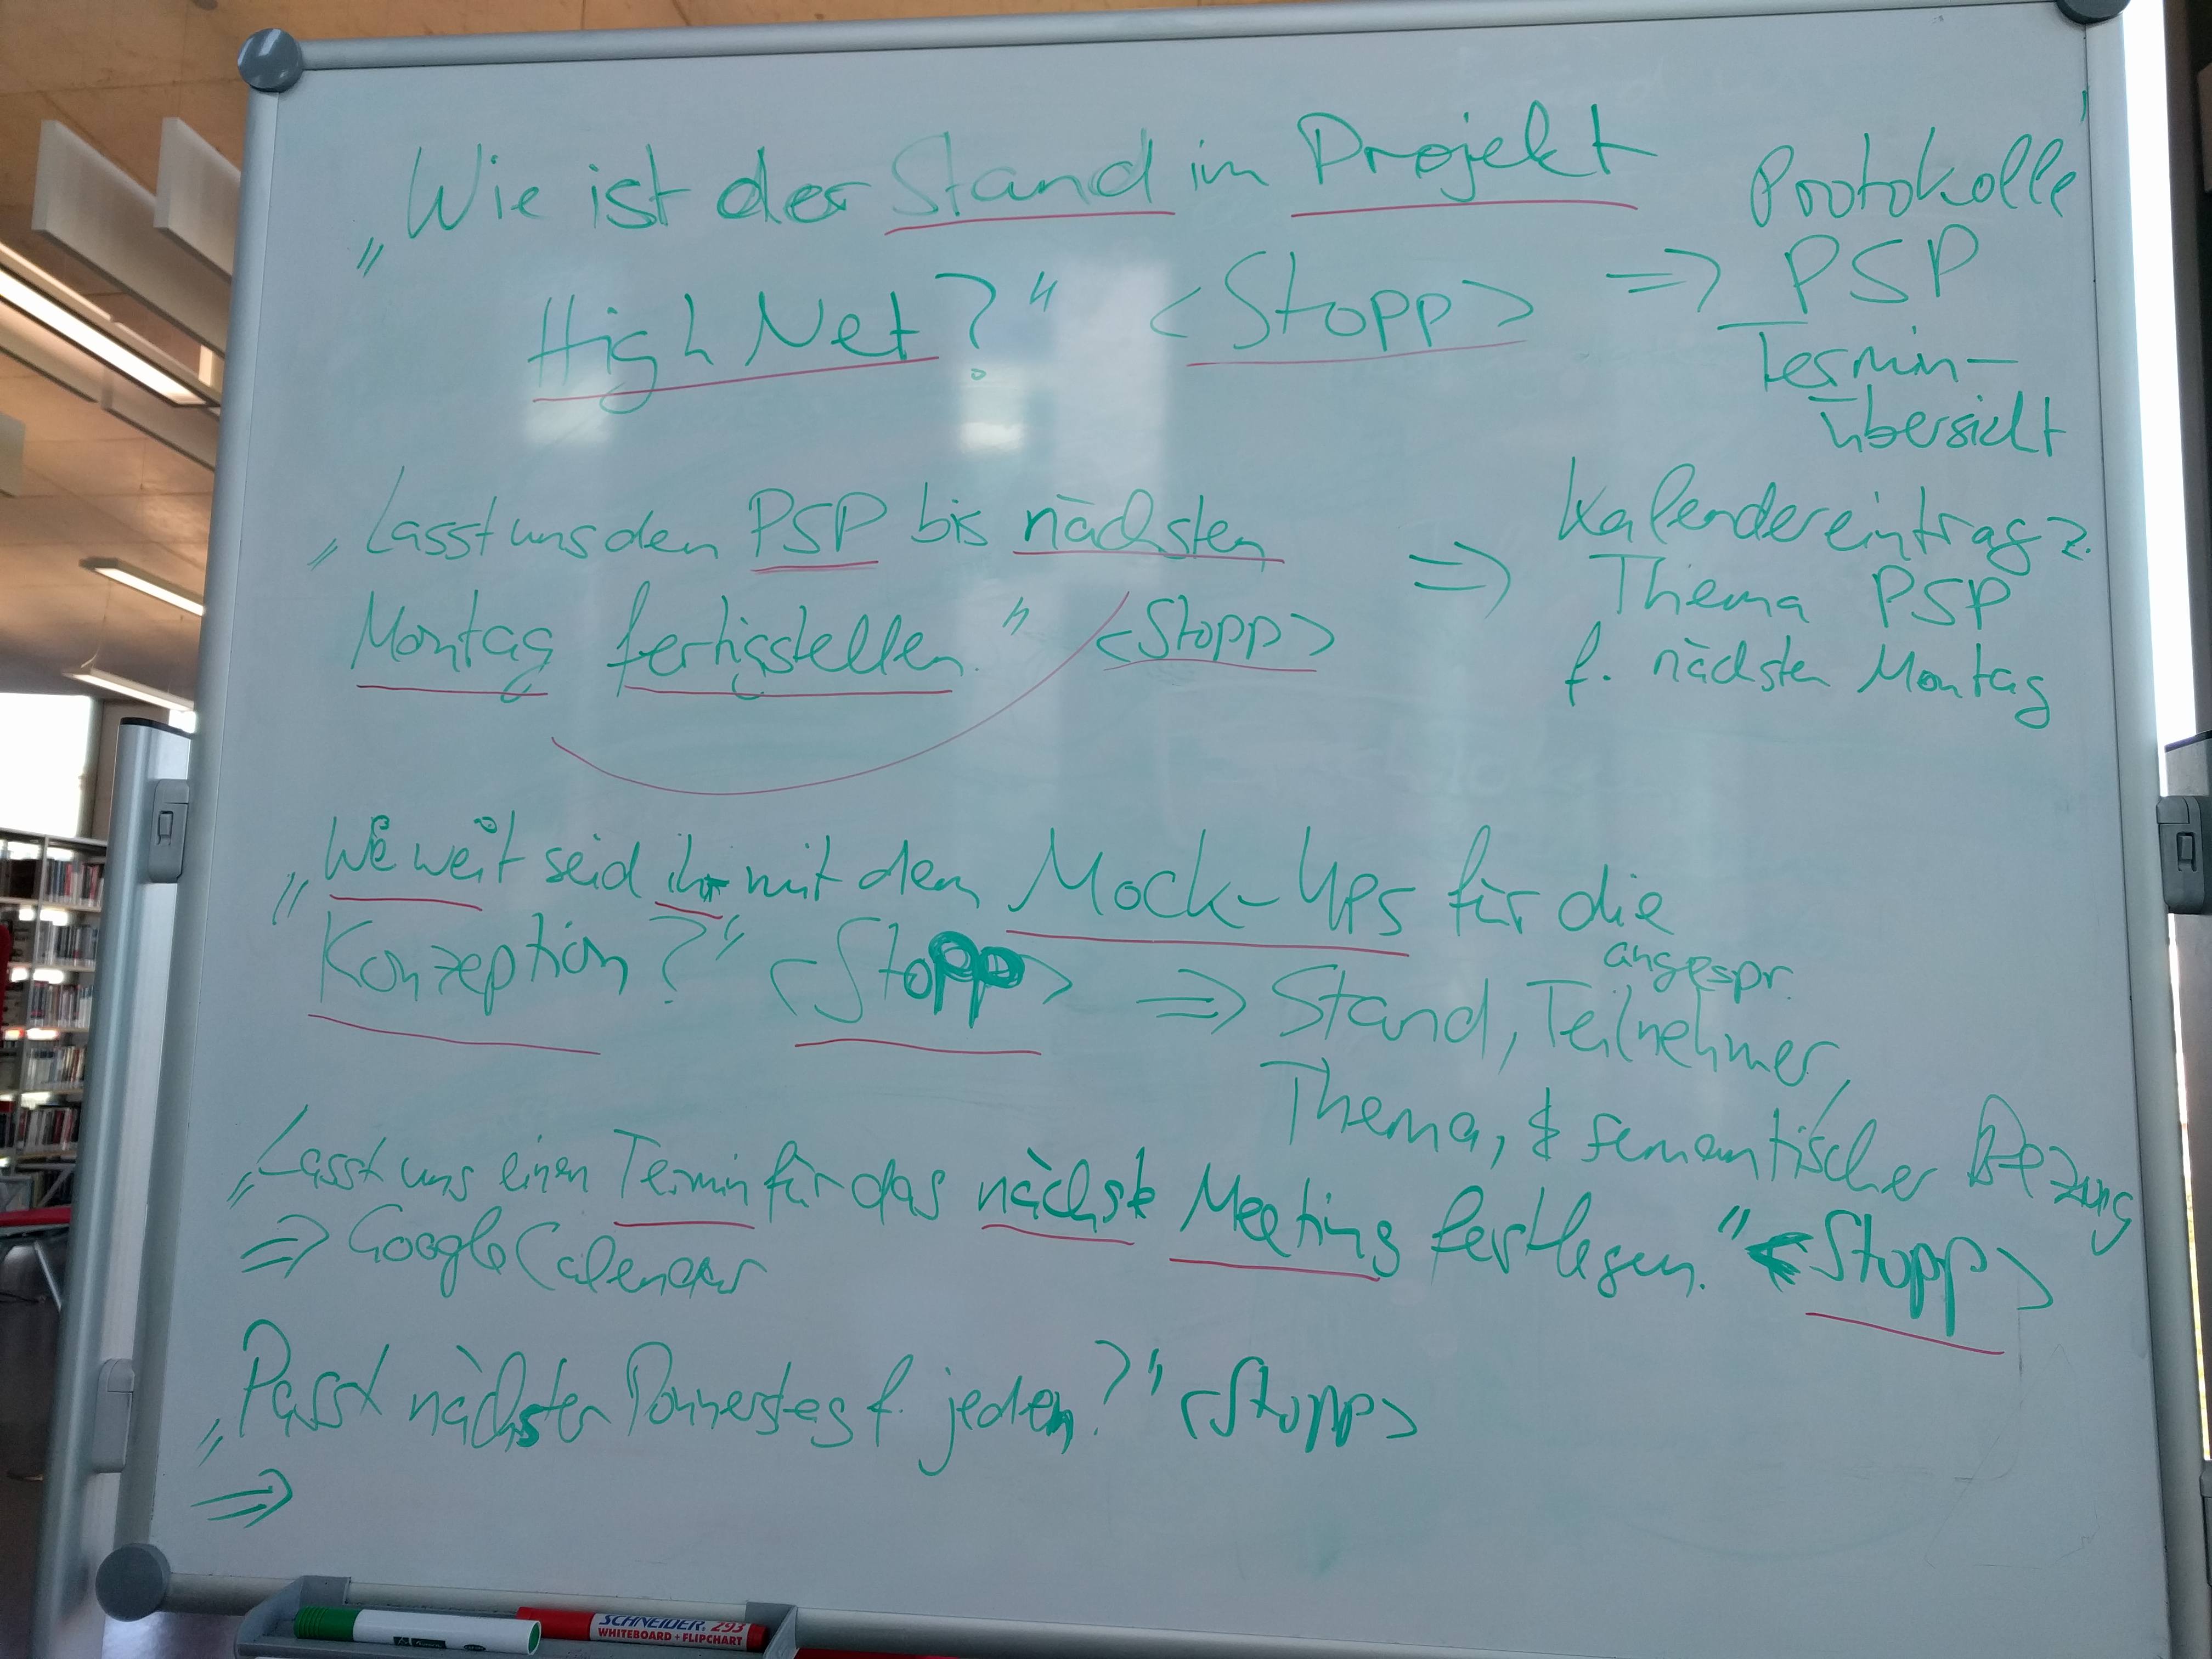 „Wie ist der Stand im Projekt
High Net?" <Stopp> => Protokolle,
PSP
Termin-
übersicht
„Lasst uns den PSP bis nächsten
Montag fertigstellen." <Stopp>
=> Kalendereintrag z.
Thema PSP
f. nächsten Montag
„Wie weit seid ihr mit den Mock-Ups für die
Konzeption?" <Stopp> => Stand, angespr. Teilnehmer,
Thema, & semantischer Bezug
„Lasst uns einen Termin für das nächste Meeting festlegen." <Stopp>
=> Google Calendar
„Passt nächster Donnerstag f. jeden?" <Stopp>
=>
SCHNEIDER 293
WHITEBOARD + FLIPCHART